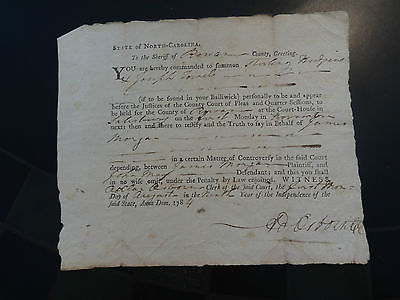 STATE of NORTH-CAROLINA.
To the Sheriff of Rowan County, Greeting.
YOU are hereby commanded to summon Sterling
& Joseph
(if to be found in your Bailiwick) personally to be and appear
before the Justices of the County Court of Pleas and Quarter Sessions, to
be held for the County of Rowan at the Court-House in
Salisbury on the first Monday in November
next: then and there to testify and the Truth to say in Behalf of James
Morgan
in a certain Matter of Controversy in the said Court
depending, between James Morgan Plaintiff, and
John Defendant; and this you shall
in no wise omit, under the Penalty by Law enjoined. WITNESS
Adlai Osborn Clerk of the said Court, the first Mon-
Day of August in the Year of the Independence of
the said State, Anno Dom. 1784
Ad Osborn CC